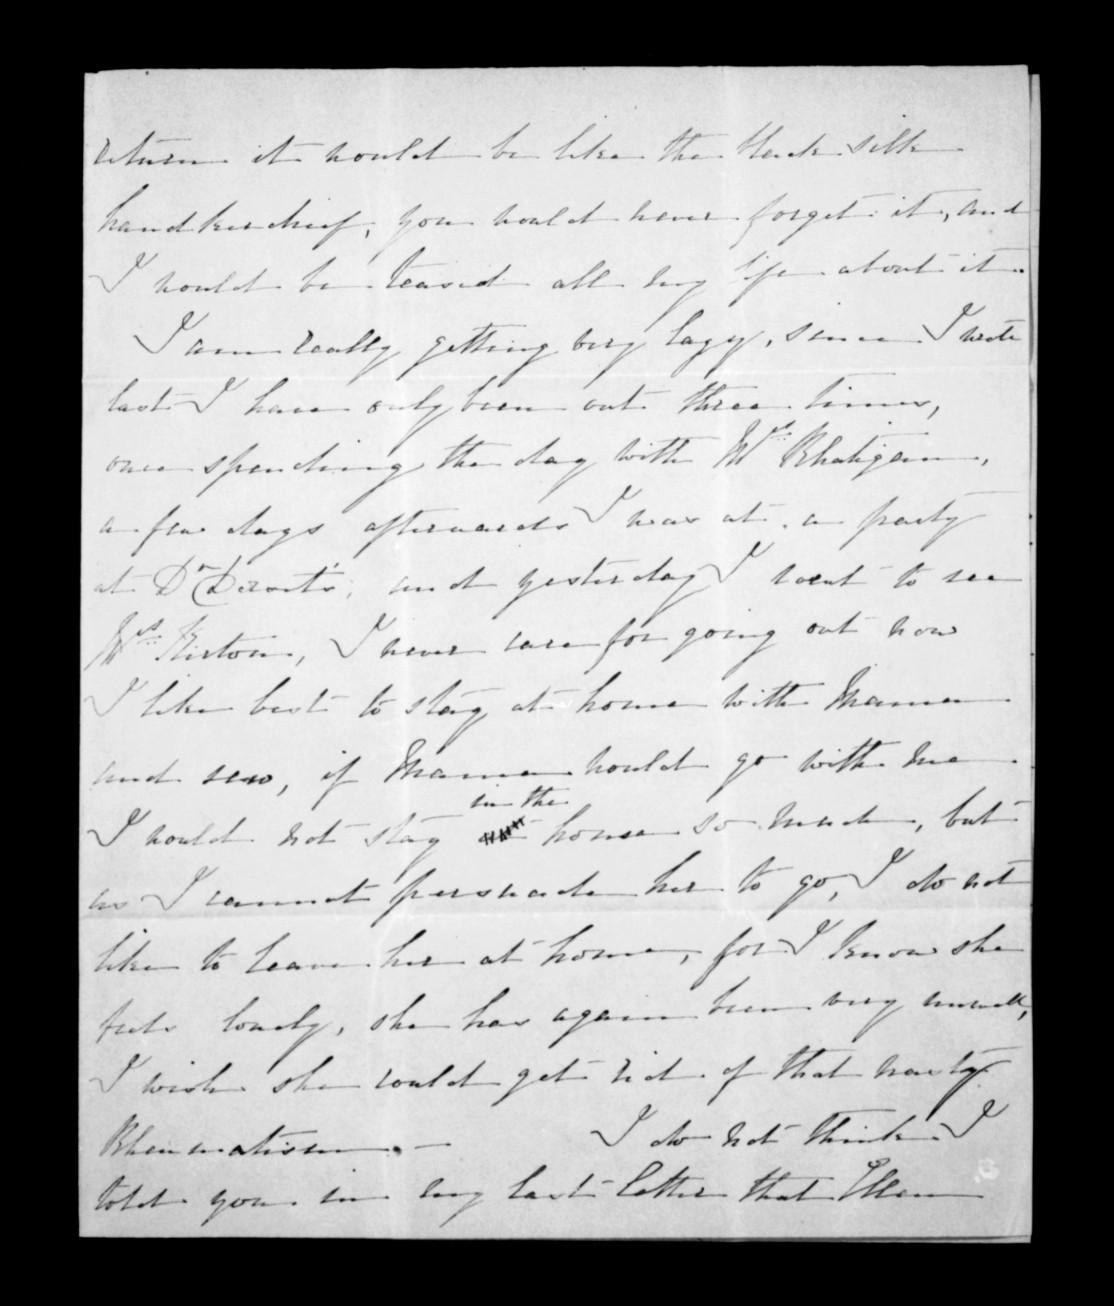 return it would be like the black silk
handkerchief, you would never forget it, and
I would be teased all my life about it.
I am really getting very lazy, since I wrote
last I have only been out three times,
once spending the day with Mrs Rhatigan,
a few days afterwards I was at a party
at Dr, and yesterday I went to see
Mrs Kirton, I never care for going out now
I like best to stay at home with Mama
and sew, if Mama would go with me
I would not stay in the house so much, but
as I cannot persuade her to go, I do not
like to leave her at home, for I know she
feels lonely, she has again been very unwell,
I wish she could get rid of that nasty
Rheumatism. — I do not think I
told you in my last letter that Ellen